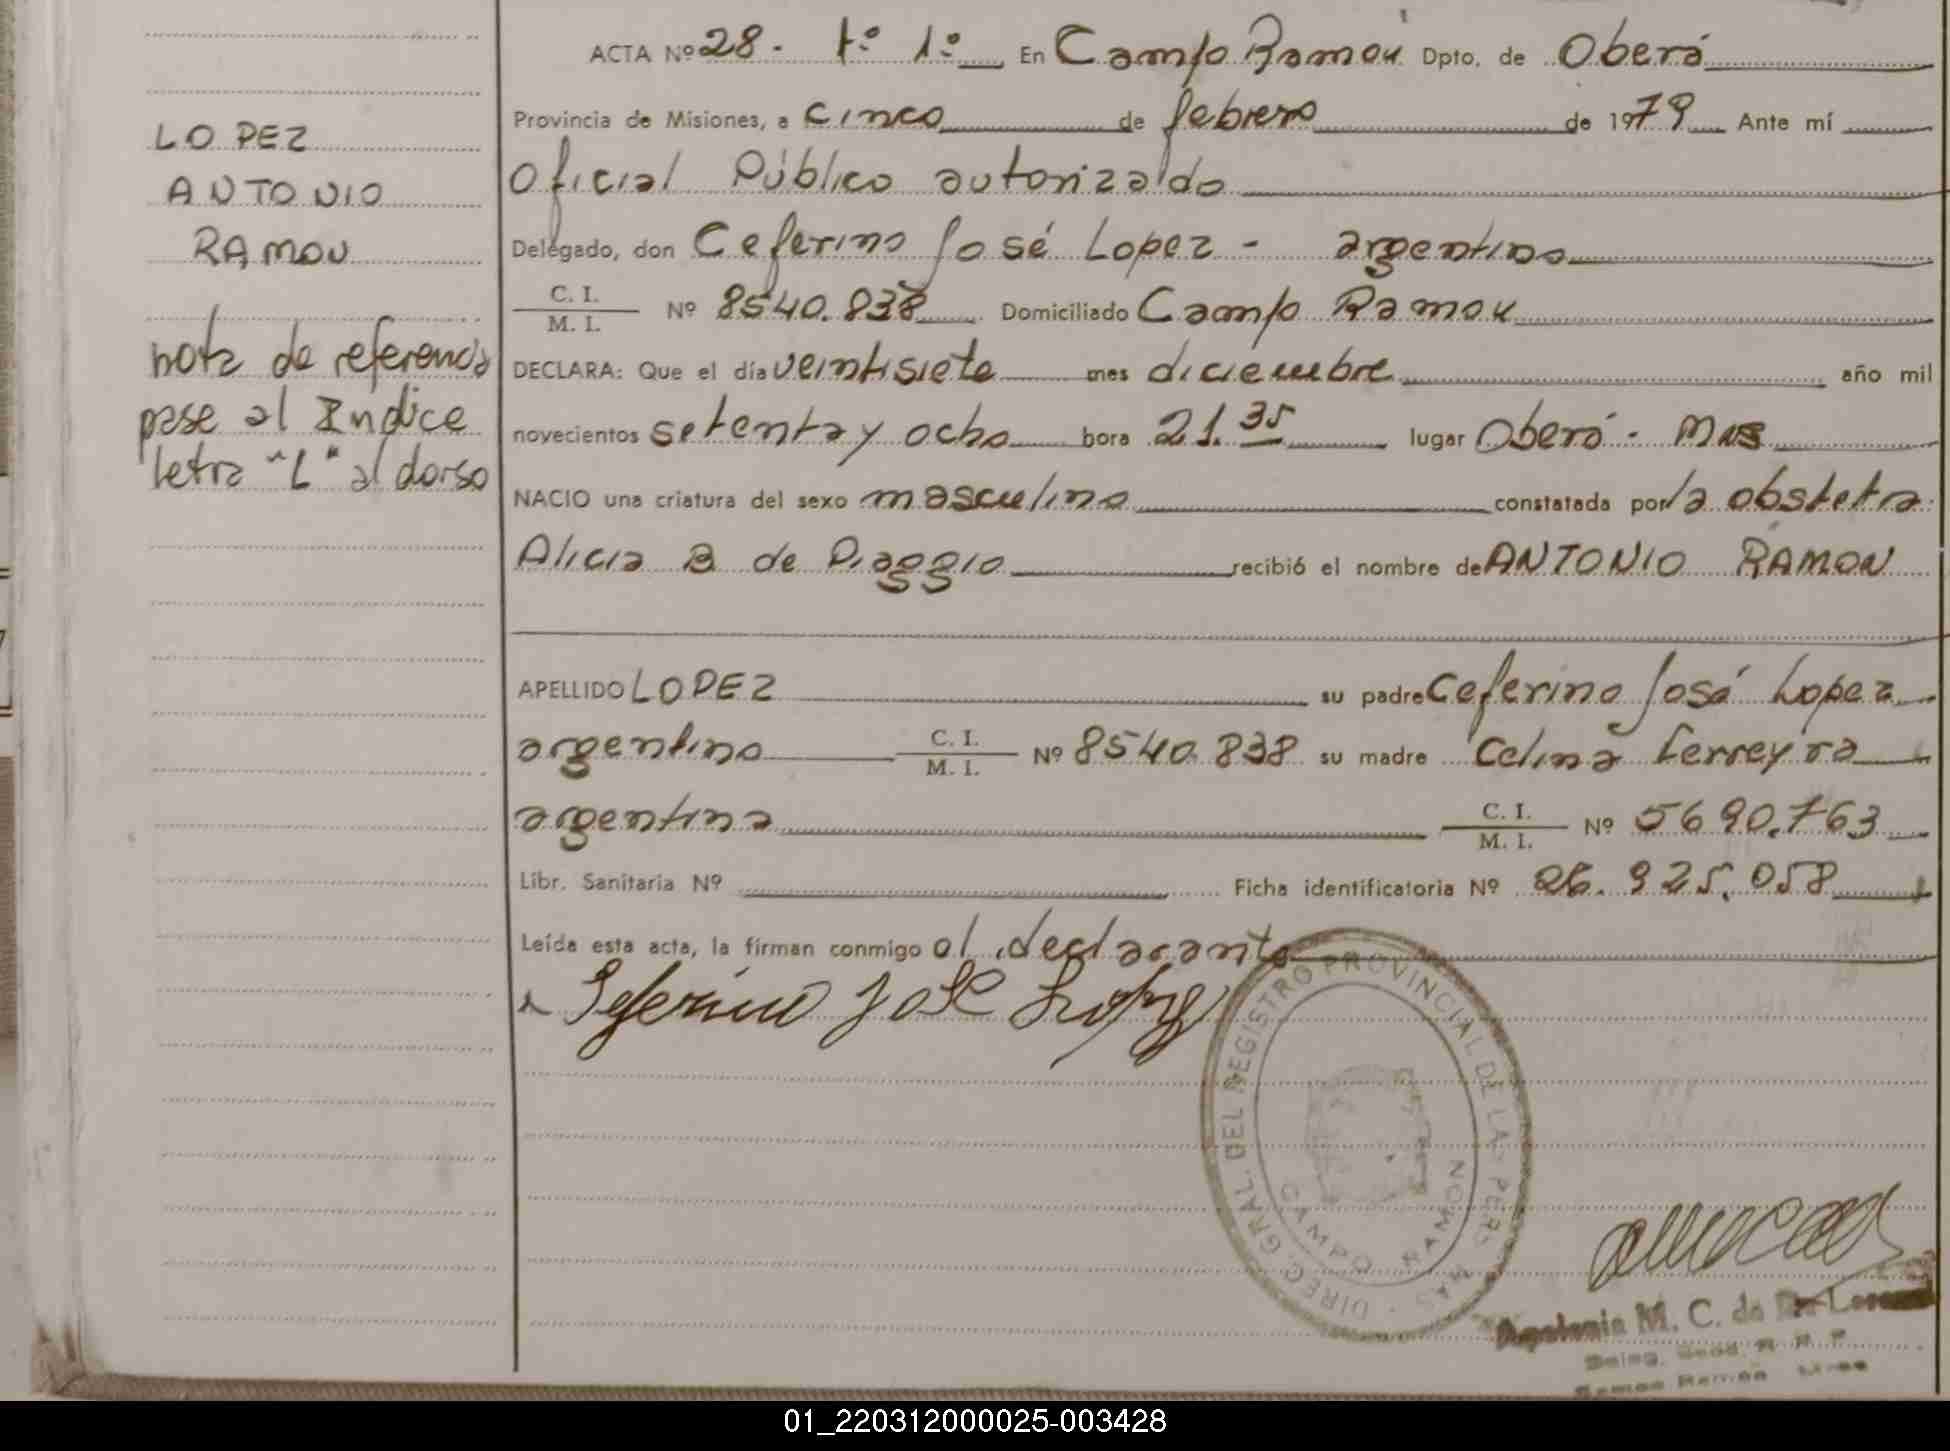 ACTA Nº 28. tº 1º En Campo Ramon Dpto. de Oberá
Provincia de Misiones, a cinco de febrero de 1979 Ante mí
Oficial Público autorizado
Delegado, don Ceferino José Lopez - argentino
C. I.
M. I.
Nº 8540.838 Domiciliado Campo Ramon
DECLARA: Que el día veintisiete mes diciembre año mil
novecientos setenta y ocho hora 21.35 lugar Oberá - Mns
NACIO una criatura del sexo masculino constatada por la obstetra
Alicia B de Piaggio recibió el nombre de ANTONIO RAMON
APELLIDO LOPEZ su padre Ceferino José Lopez
argentino C. I. M. I. Nº 8540.838 su madre Celina Ferreyra
argentina C. I. M. I. Nº 5690.763
Libr. Sanitaria Nº Ficha identificatoria Nº 26.925.058
Leída esta acta, la firman conmigo el declarante
Seferino José Lopez
LOPEZ
ANTONIO
RAMON
nota de referencia
pase al Indice
letra "L" al dorso
DIREC. GRAL. DEL REGISTRO PROVINCIAL DE LAS PERS. MAS
CAMPO RAMON
Apolonia M. C. de
01_220312000025-003428